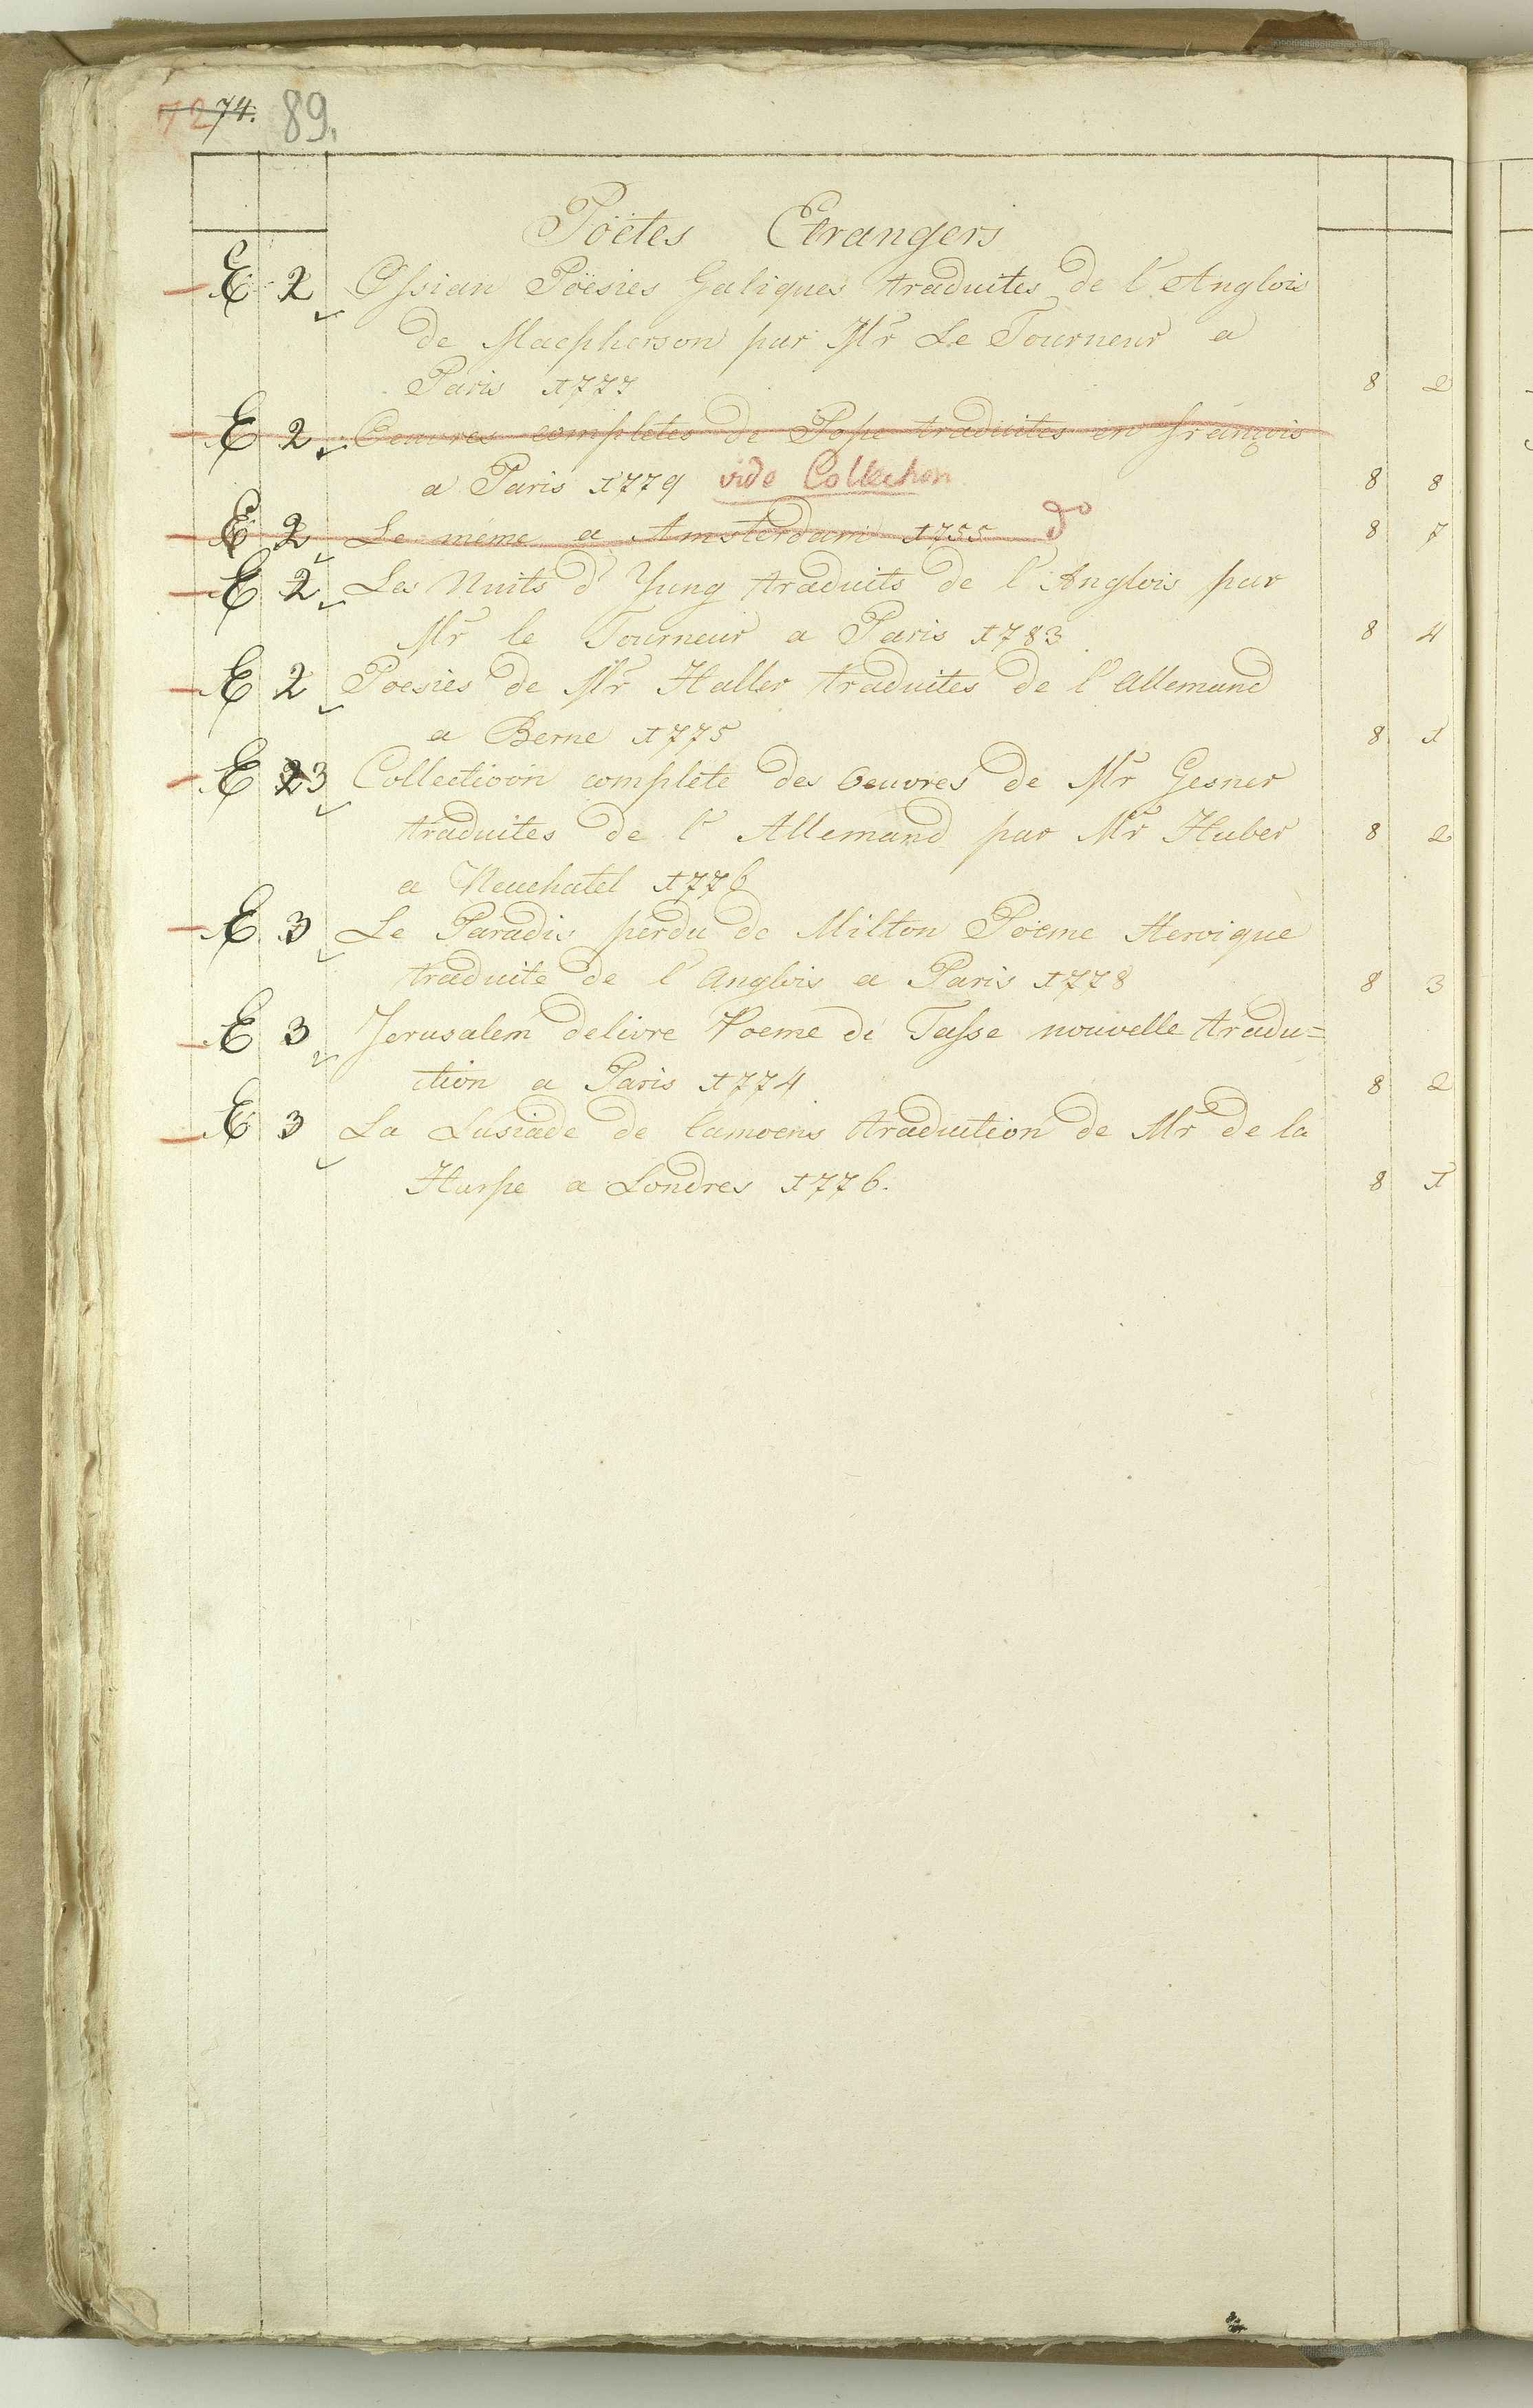 72 74. 89.
Poëtes Etrangers
E 2 Ossian Poësies Galiques traduites de l'Anglois
de Macpherson par Mr Le Tourneur a
Paris 1777 8 2
E 2 Oeuvres completes de Pope traduites en françois
a Paris 1779 vide Collection 8 8
E 2 Le même a Amsterdam 1755 do 8 7
E 2 Les Nuits d'Yung traduits de l'Anglois par
Mr le Tourneur a Paris 1783 8 4
E 2 Poesies de Mr Haller traduites de l'Allemand
a Berne 1775 8 1
E 23 Collectioon complete des Oeuvres de Mr Gesner
traduites de l'Allemand par Mr Huber 8 2
a Neuchatel 1776
E 3 Le Paradis perdu de Milton Poëme Heroique
traduite de l'Anglois a Paris 1778 8 3
E 3 Jerusalem delivre Poeme de Tasse nouvelle tradu=
ction a Paris 1774 8 2
E 3 La Lusiade de Camoens traduction de Mr de la
Harpe a Londres 1776. 8 1